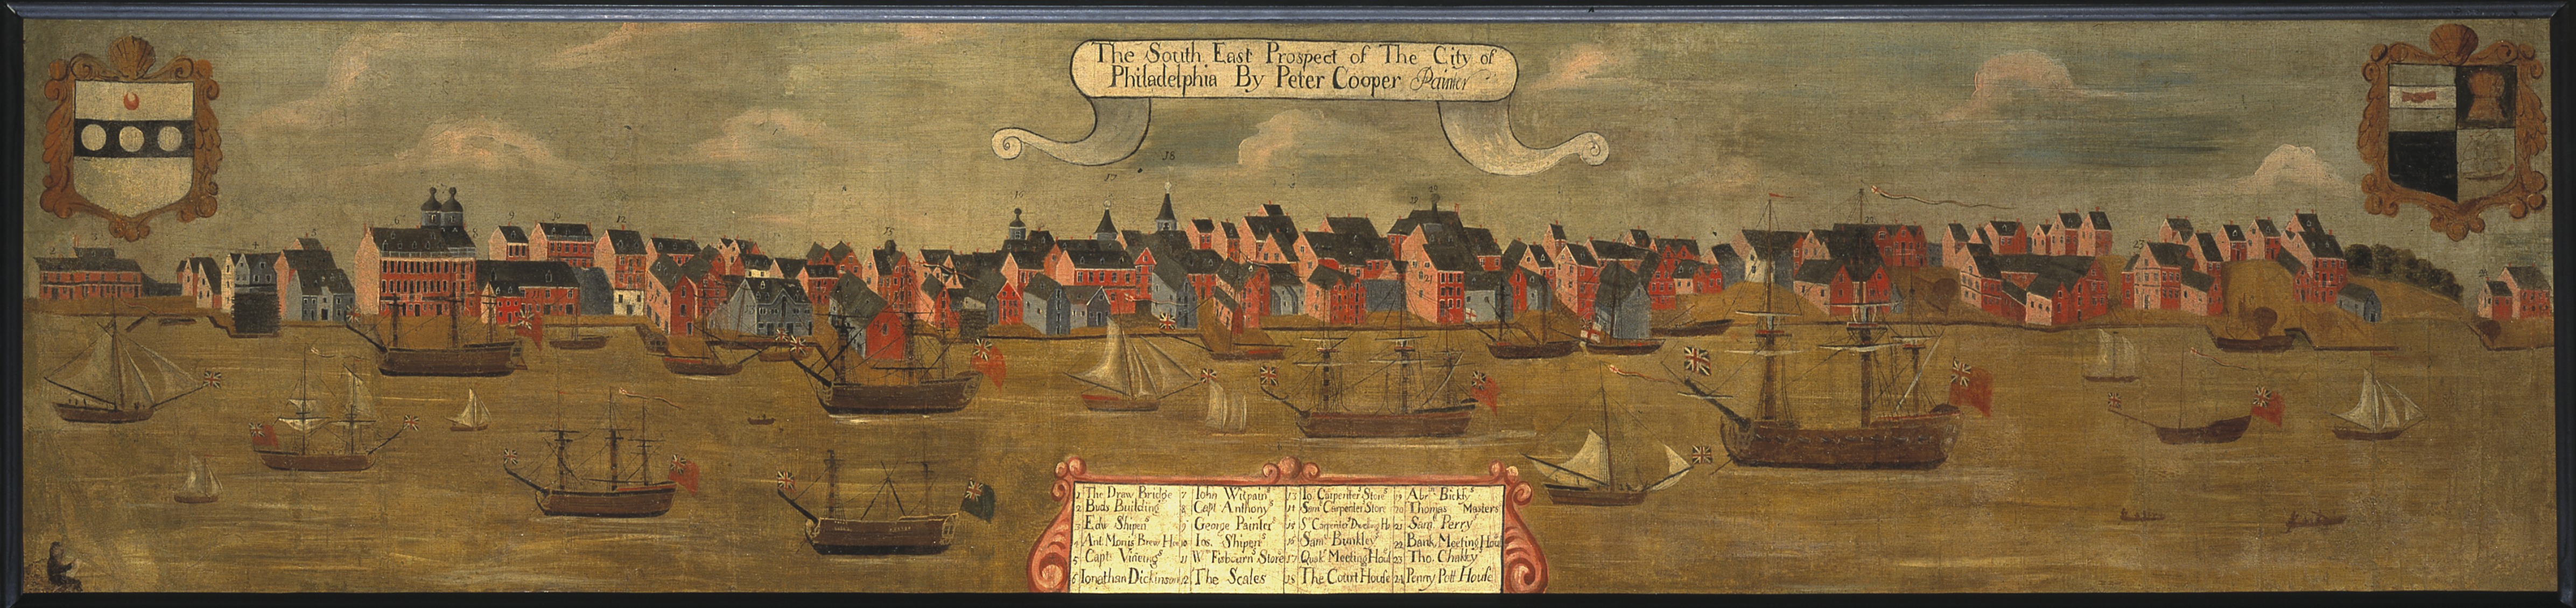 The South East Prospect of The City of
Philadelphia By Peter Cooper Painter
1 The Draw Bridge
2 Buds Building
3 Edw Shipens
4 Ant Moris Brew Ho
5 Capt Vineings
6 Ionathan Dickinson
7 Iohn Witpain
8 Capt Anthonys
9 George Painters
10 Ios. Shipens
11 Wm Fisbourn Store
12 The Scales
13 Io. Carpenter Stores
14 Saml Carpenter Store
15 S Carpenters Dweling Ho
16 Saml Bunkleys
17 Quak Meeting Hous
18 The Court House
19 Abrm Bickly
20 Thomas Masters
21 Saml Perry
22 Bank Meeting Hous
23 Tho. Chalkleys
24 Penny Pott House